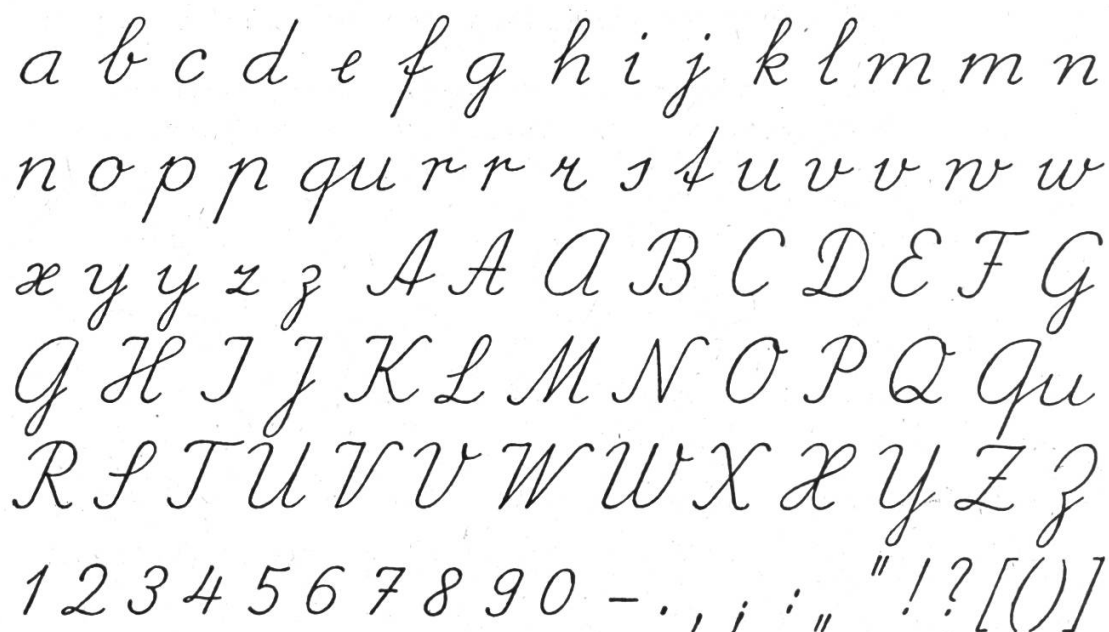 a b c d e f g h i j k l m m n
n o p p qu r r r s t u v v w w
x y y z z A A A B C D E F G
G H I J K L M N O P Q Qu
R S T U V V W W X X Y Z Z
1 2 3 4 5 6 7 8 9 0 - . , ; : „ " ! ? [ ( ) ]